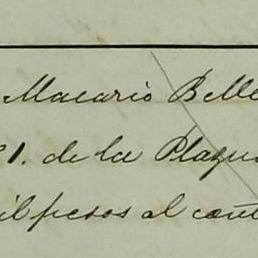 Macario Belle
1. de la Plazu
il pesos al cont